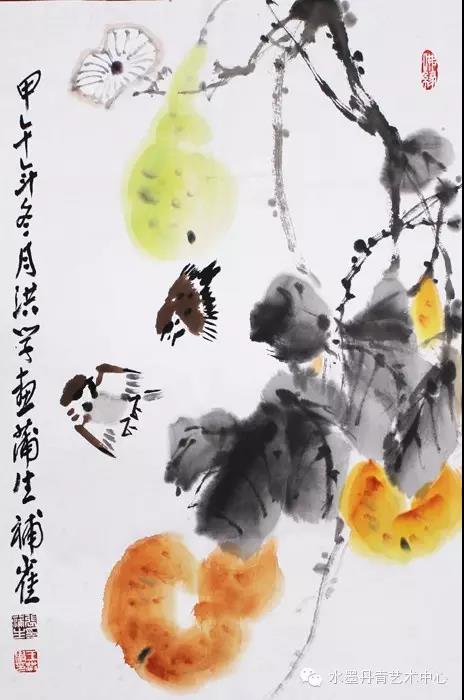 甲午年冬月洪学画蒲生補雀
水墨丹青艺术中心